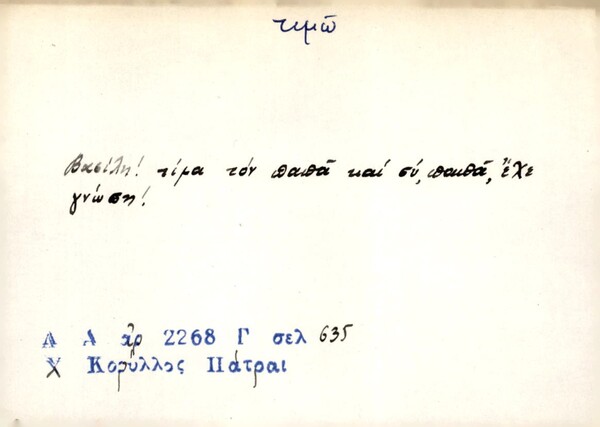 τιμῶ
Βασίλη! τίμα τόν παπᾶ καί σύ, παπᾶ, ἔχε
γνώση!
Λ Α ἀρ 2268 Γ σελ 635
Χ Κορύλλος Πάτραι